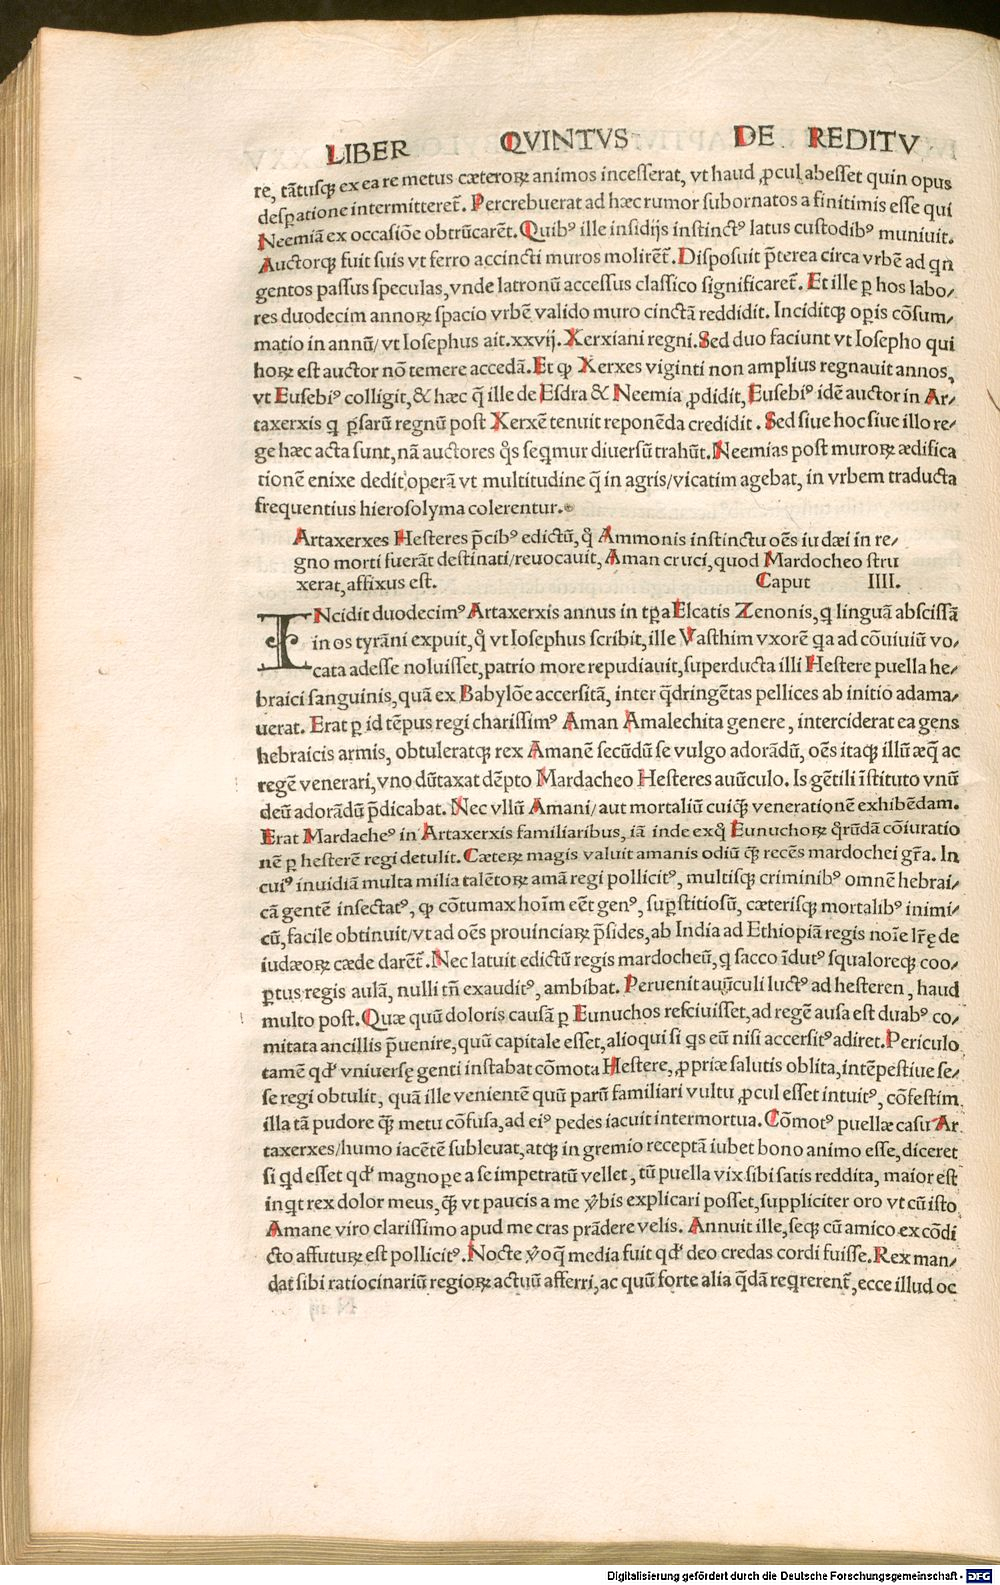 LIBER QVINTVS DE REDITV
re, tãtusq̃ ex ea re metus cæteroꝝ animos incesserat, vt haud ꝓcul abesset quin opus
desꝑatione intermitteret̃. Percrebuerat ad hæc rumor subornatos a finitimis esse qui
Neemiã ex occasiõe obtrũcarẽt. Quibꝰ ille insidijs instinctꝰ latus custodibꝰ muniuit.
Auctorq̃ fuit suis vt ferro accincti muros molirẽt̃. Disposuit p̃terea circa vrbẽ ad qn̄
gentos passus speculas, vnde latronũ accessus classico significaret̃. Et ille ꝑ hos labo⸗
res duodecim annoꝝ spacio vrbẽ valido muro cinctã reddidit. Inciditq̃ oꝑis cõsum⸗
matio in annũ/ vt Iosephus ait. xxvij. Xerxiani regni. Sed duo faciunt vt Iosepho qui
hoꝝ est auctor nõ temere accedã. Et ꝙ Xerxes viginti non amplius regnauit annos,
vt Eusebiꝰ colligit, & hæc q̃ ille de Esdra & Neemia ꝓdidit, Eusebiꝰ idẽ auctor in Ar⸗
taxerxis q ꝑsarũ regnũ post Xerxẽ tenuit reponẽda credidit. Sed siue hoc siue illo re⸗
ge hæc acta sunt, nã auctores q̊s seqmur diuersũ trahũt. Neemias post muroꝝ ædifica
tionẽ enixe dedit operã vt multitudine q̃ in agris/ vicatim agebat, in vrbem traducta
frequentius hierosolyma colerentur.
Artaxerxes Hesteres p̃cibꝰ edictũ, q̊ Ammonis instinctu oẽs iudæi in re⸗
gno morti fuerãt destinati/ reuocauit, Aman cruci, quod Mardocheo stru
xerat, affixus est. Caput IIII.
INcidit duodecimꝰ Artaxerxis annus in tꝑa Elcatis Zenonis, q linguã abscissã
in os tyrãni expuit, q̊ vt Iosephus scribit, ille Vasthim vxorẽ qa ad cõuiuiũ vo⸗
cata adesse noluisset, patrio more repudiauit, superducta illi Hestere puella he⸗
braici sanguinis, quã ex Babylõe accersitã, inter q̃dringẽtas pellices ab initio adama⸗
uerat. Erat ꝑ id tẽpus regi charissimꝰ Aman Amalechita genere, interciderat ea gens
hebraicis armis, obtuleratq̃ rex Amanẽ secũdũ se vulgo adorãdũ, oẽs itaq̃ illũ æq̃ ac
regẽ venerari, vno dũtaxat dẽpto Mardacheo Hesteres auũculo. Is gẽtili ĩstituto vnũ
deũ adorãdũ p̃dicabat. Nec vllũ Amani/ aut mortaliũ cuiq̃ venerationẽ exhibẽdam.
Erat Mardacheꝰ in Artaxerxis familiaribus, iã inde ex q̊ Eunuchoꝝ q̊rũdã cõiuratio
nẽ ꝑ hesterẽ regi detulit. Cæteꝝ magis valuit amanis odiũ q̃ recẽs mardochei gr̃a. In
cuiꝰ inuidiã multa milia talẽtoꝝ amã regi pollicitꝰ, multisq̃ criminibꝰ omnẽ hebrai⸗
cã gentẽ insectatꝰ, ꝙ cõtumax hoĩm eẽt genꝰ, suꝑstitiosũ, cæterisq̃ mortalibꝰ inimi⸗
cũ, facile obtinuit/ vt ad oẽs prouinciaꝝ p̃sides, ab India ad Ethiopiã regis noĩe lr̃ę de
iudæoꝝ cæde darẽt̃. Nec latuit edictũ regis mardocheũ, q sacco ĩdutꝰ squaloreq̃ coo⸗
ꝑtus regis aulã, nulli tñ exauditꝰ, ambibat. Peruenit auũculi luctꝰ ad hesteren, haud
multo post. Quæ quũ doloris causã ꝑ Eunuchos resciuisset, ad regẽ ausa est duabꝰ co⸗
mitata ancillis p̃uenire, quũ capitale esset, alioqui si qs eũ nisi accersitꝰ adiret. Periculo
tamẽ qđ vniuersę genti instabat cõmota Hestere, ꝓpriæ salutis oblita, intẽpestiue se⸗
se regi obtulit, quã ille venientẽ quũ parũ familiari vultu ꝓcul esset intuitꝰ, cõfestim
illa tã pudore q̃ metu cõfusa, ad eiꝰ pedes iacuit intermortua. Cõmotꝰ puellæ casu Ar
taxerxes/ humo iacẽtẽ subleuat, atq̃ in gremio receptã iubet bono animo esse, diceret
si qd esset qđ magnoꝑe a se impetratũ vellet, tũ puella vix sibi satis reddita, maior est
inqt rex dolor meus, q̃ vt paucis a me v̾bis explicari posset, suppliciter oro vt cũ isto
Amane viro clarissimo apud me cras prãdere velis. Annuit ille, seq̃ cũ amico ex cõdi
cto affutuꝝ est pollicitꝰ. Nocte v̾o q̃ media fuit qđ deo credas cordi fuisse. Rex man⸗
dat sibi ratiocinariũ regioꝝ actuũ afferri, ac quũ forte alia q̃dã reqrerent̃, ecce illud oc
Digitalisierung gefördert durch die Deutsche Forschungsgemeinschaft - DFG